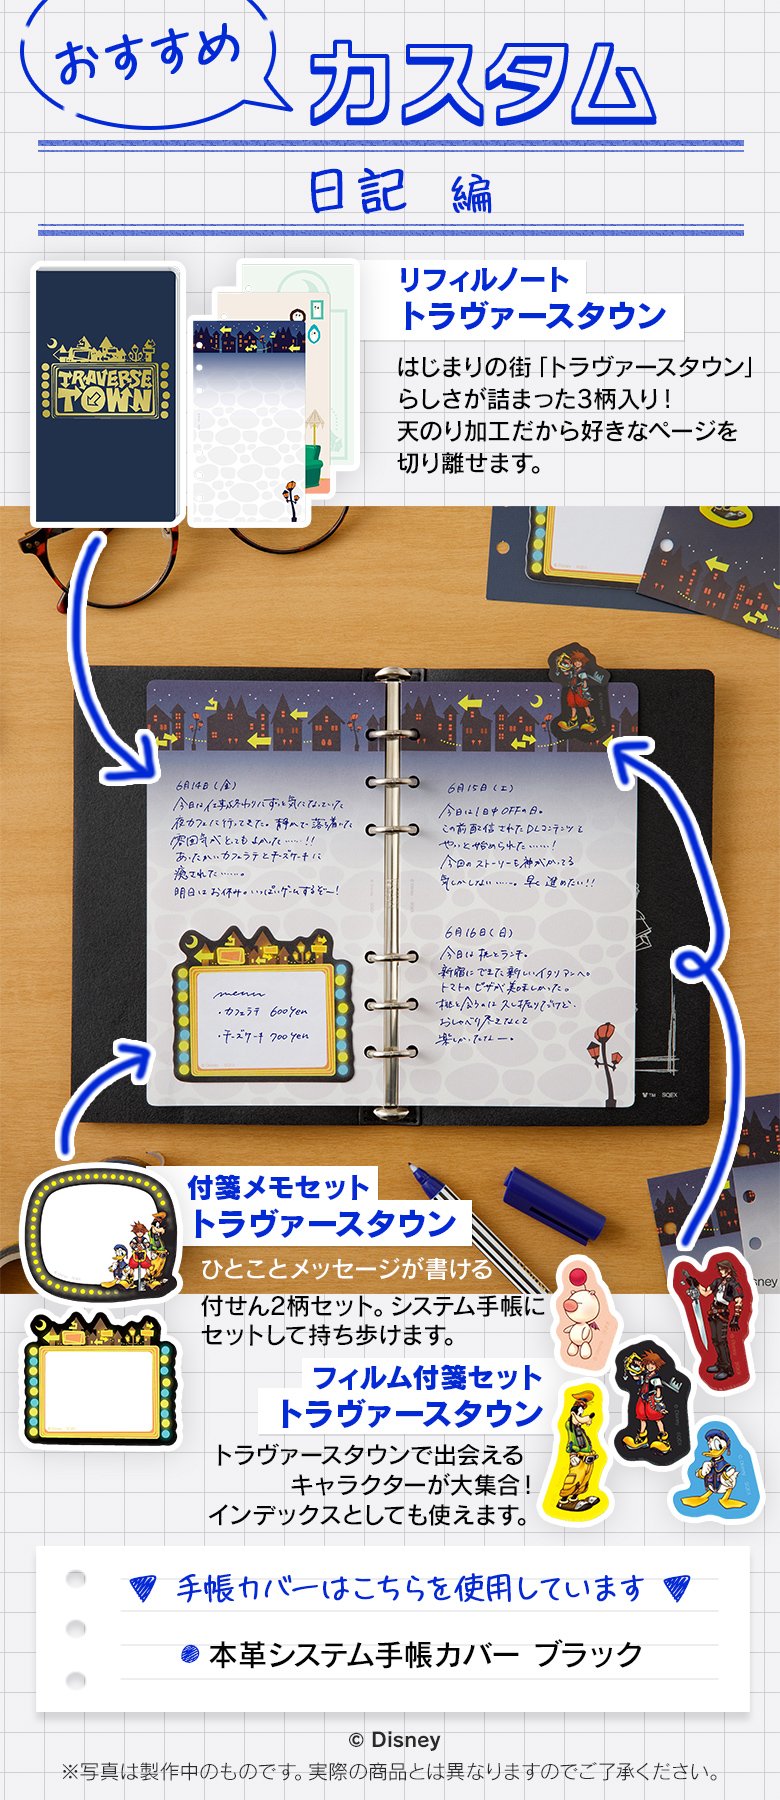 おすすめ
カスタム
日記 編
リフィルノート
トラヴァースタウン
はじまりの街「トラヴァースタウン」
らしさが詰まった3柄入り！
天のり加工だから好きなページを
切り離せます。
TRAVERSE
TOWN
6月14日(金)
今日は仕事終わりにずっと気になっていた
夜カフェに行ってきた。静かで落ち着いた
雰囲気がとてもよかった……!!
あったかいカフェラテとチーズケーキに
癒された……。
明日はお休み。いっぱいゲームするぞ〜!
menu
・カフェラテ 600yen
・チーズケーキ 700yen
6月15日(土)
今日は1日中OFFの日。
この前配信されたDLコンテンツを
やっと始められた……!
今回のストーリーも神がかってる
気しかしない……。早く進めたい!!
6月16日(日)
今日は桃とランチ。
新宿にできた新しいイタリアンへ。
トマトのピザが美味しかった。
桃と会うのは久し振りだけど、
おしゃべり尽きなくて
楽しかったなー。
TM SQEX
付箋メモセット
トラヴァースタウン
ひとことメッセージが書ける
付せん2柄セット。システム手帳に
セットして持ち歩けます。
フィルム付箋セット
トラヴァースタウン
トラヴァースタウンで出会える
キャラクターが大集合！
インデックスとしても使えます。
手帳カバーはこちらを使用しています
本革システム手帳カバー ブラック
© Disney
※写真は製作中のものです。実際の商品とは異なりますのでご了承ください。